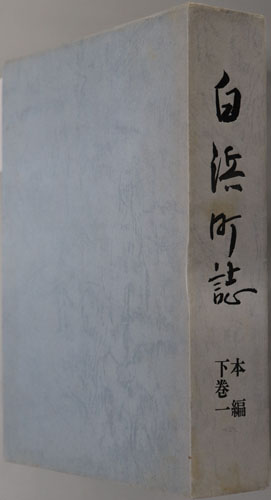 白浜町誌
本編
下巻一